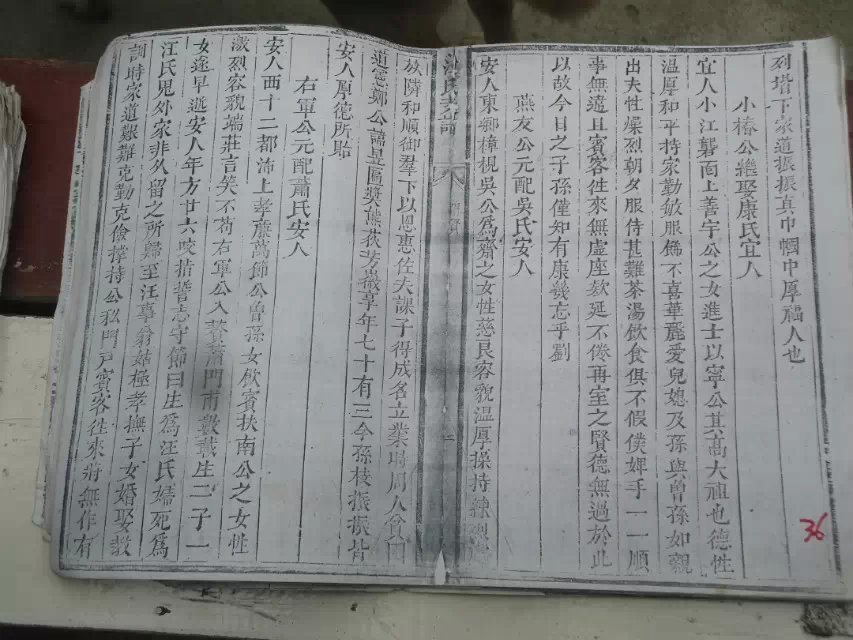 列堦下家道振振真巾幗中厚福人也
小椿公繼娶康氏宜人
宜人小江磬面上善宇公之女進士以寧公其高大祖也德性
温厚和平持家勤敏服飾不喜華麗愛兒媳及孫與曾孫如親
出夫性燥烈朝夕服侍甚難茶湯飲食俱不假僕婢手一一順
事無違且賓客徃來無虛座欵延不倦再室之賢德無過於此
以故今日之子孫僅知有康幾忘乎劉
燕友公元配吳氏安人
安人東鄉樟枧吳公為齋之女性慈良容貌温厚操持
汪氏
於隣和順御羣下以恩惠佐夫課子得成名立業時周人
道憲鄭公諱昱匾奬熊荻芳徽享年七十有三今孫枝振振皆
安人厚德所貽
右軍公元配蕭氏安人
安人西十二都沛上孝亷萬節公曾孫女飲賓扶南公之女性
激烈容貌端莊言笑不苟右軍公入贅蕭門巿歲載生二子一
女遂早逝安人年方廿六咬指誓志守節曰生為汪氏婦死為
汪氏鬼外家非久留之所歸至汪事翁姑極孝撫子女婚娶教
訓時家道艱難克勤克儉撑持公私門戸賓客徃來將無作有
36